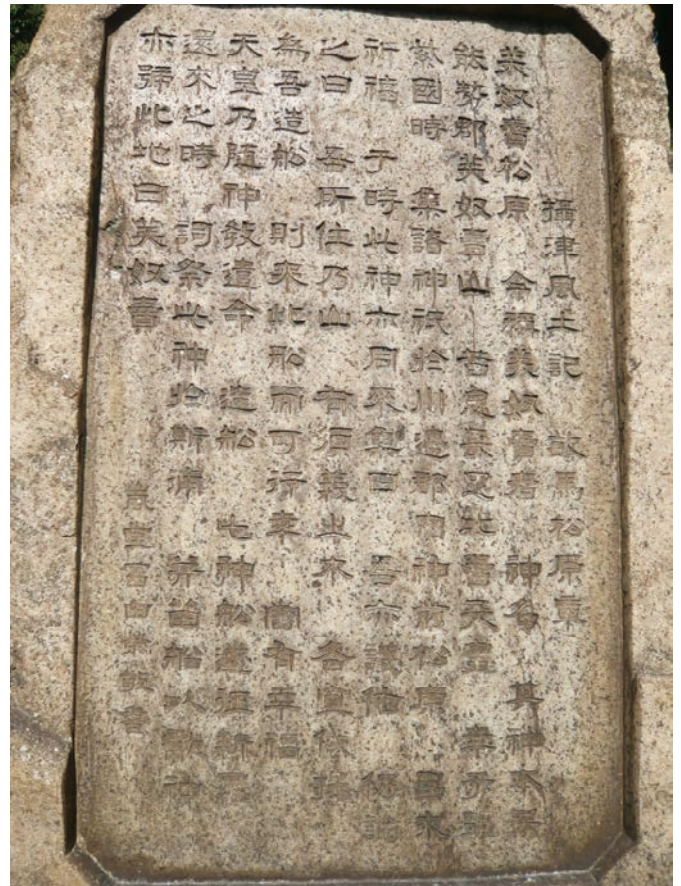 攝津風土記 敏馬松原
美奴賣松原 今稱美奴賣者 神名 其神本居
能勢郡美奴賣山 昔息長足比賣天皇 幸于筑
紫國時 集諸神祇於川邊郡内神前松原 以求
祈福 于時此神亦同來集曰 吾亦護佑 仍諭
之曰 吾所住乃山 有須義乃木 各宜伐採
為吾造船 則乘此船而可行幸 當有幸福
天皇乃隨神教遣命 造船 此神船遂征新羅
還來之時 祠祭此神於斯浦 并留船以獻神
亦號此地曰美奴賣